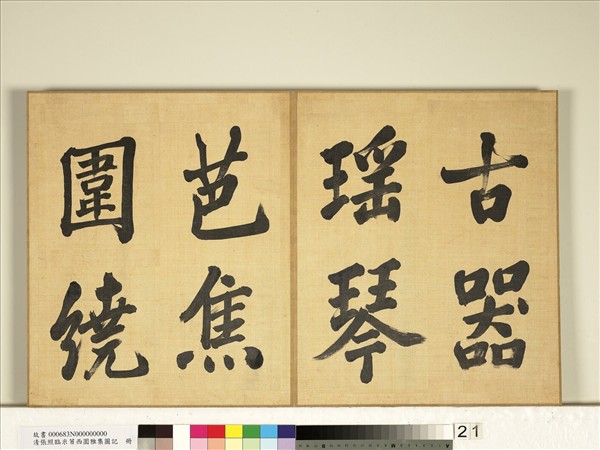 古器
瑶琴
芭焦
圍繞
故書 000683N000000000
清張照臨米芾西園雅集圖記 冊
21